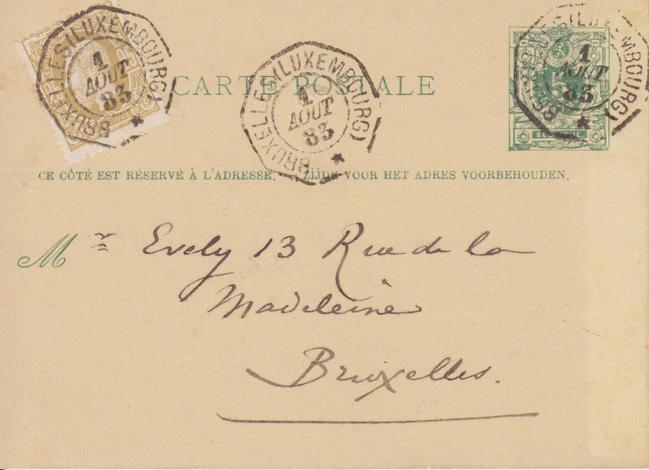 BRUXELLES (LUXEMBOURG)
1
AOUT
83
CARTE POSTALE
BRUXELLES (LUXEMBOURG)
1
AOUT
83
BRUXELLES (LUXEMBOURG)
1
AOUT
83
5
CE CÔTÉ EST RÉSERVÉ À L'ADRESSE. ZIJDE VOOR HET ADRES VOORBEHOUDEN.
Mr Evely 13 Rue de la
Madeleine
Bruxelles.